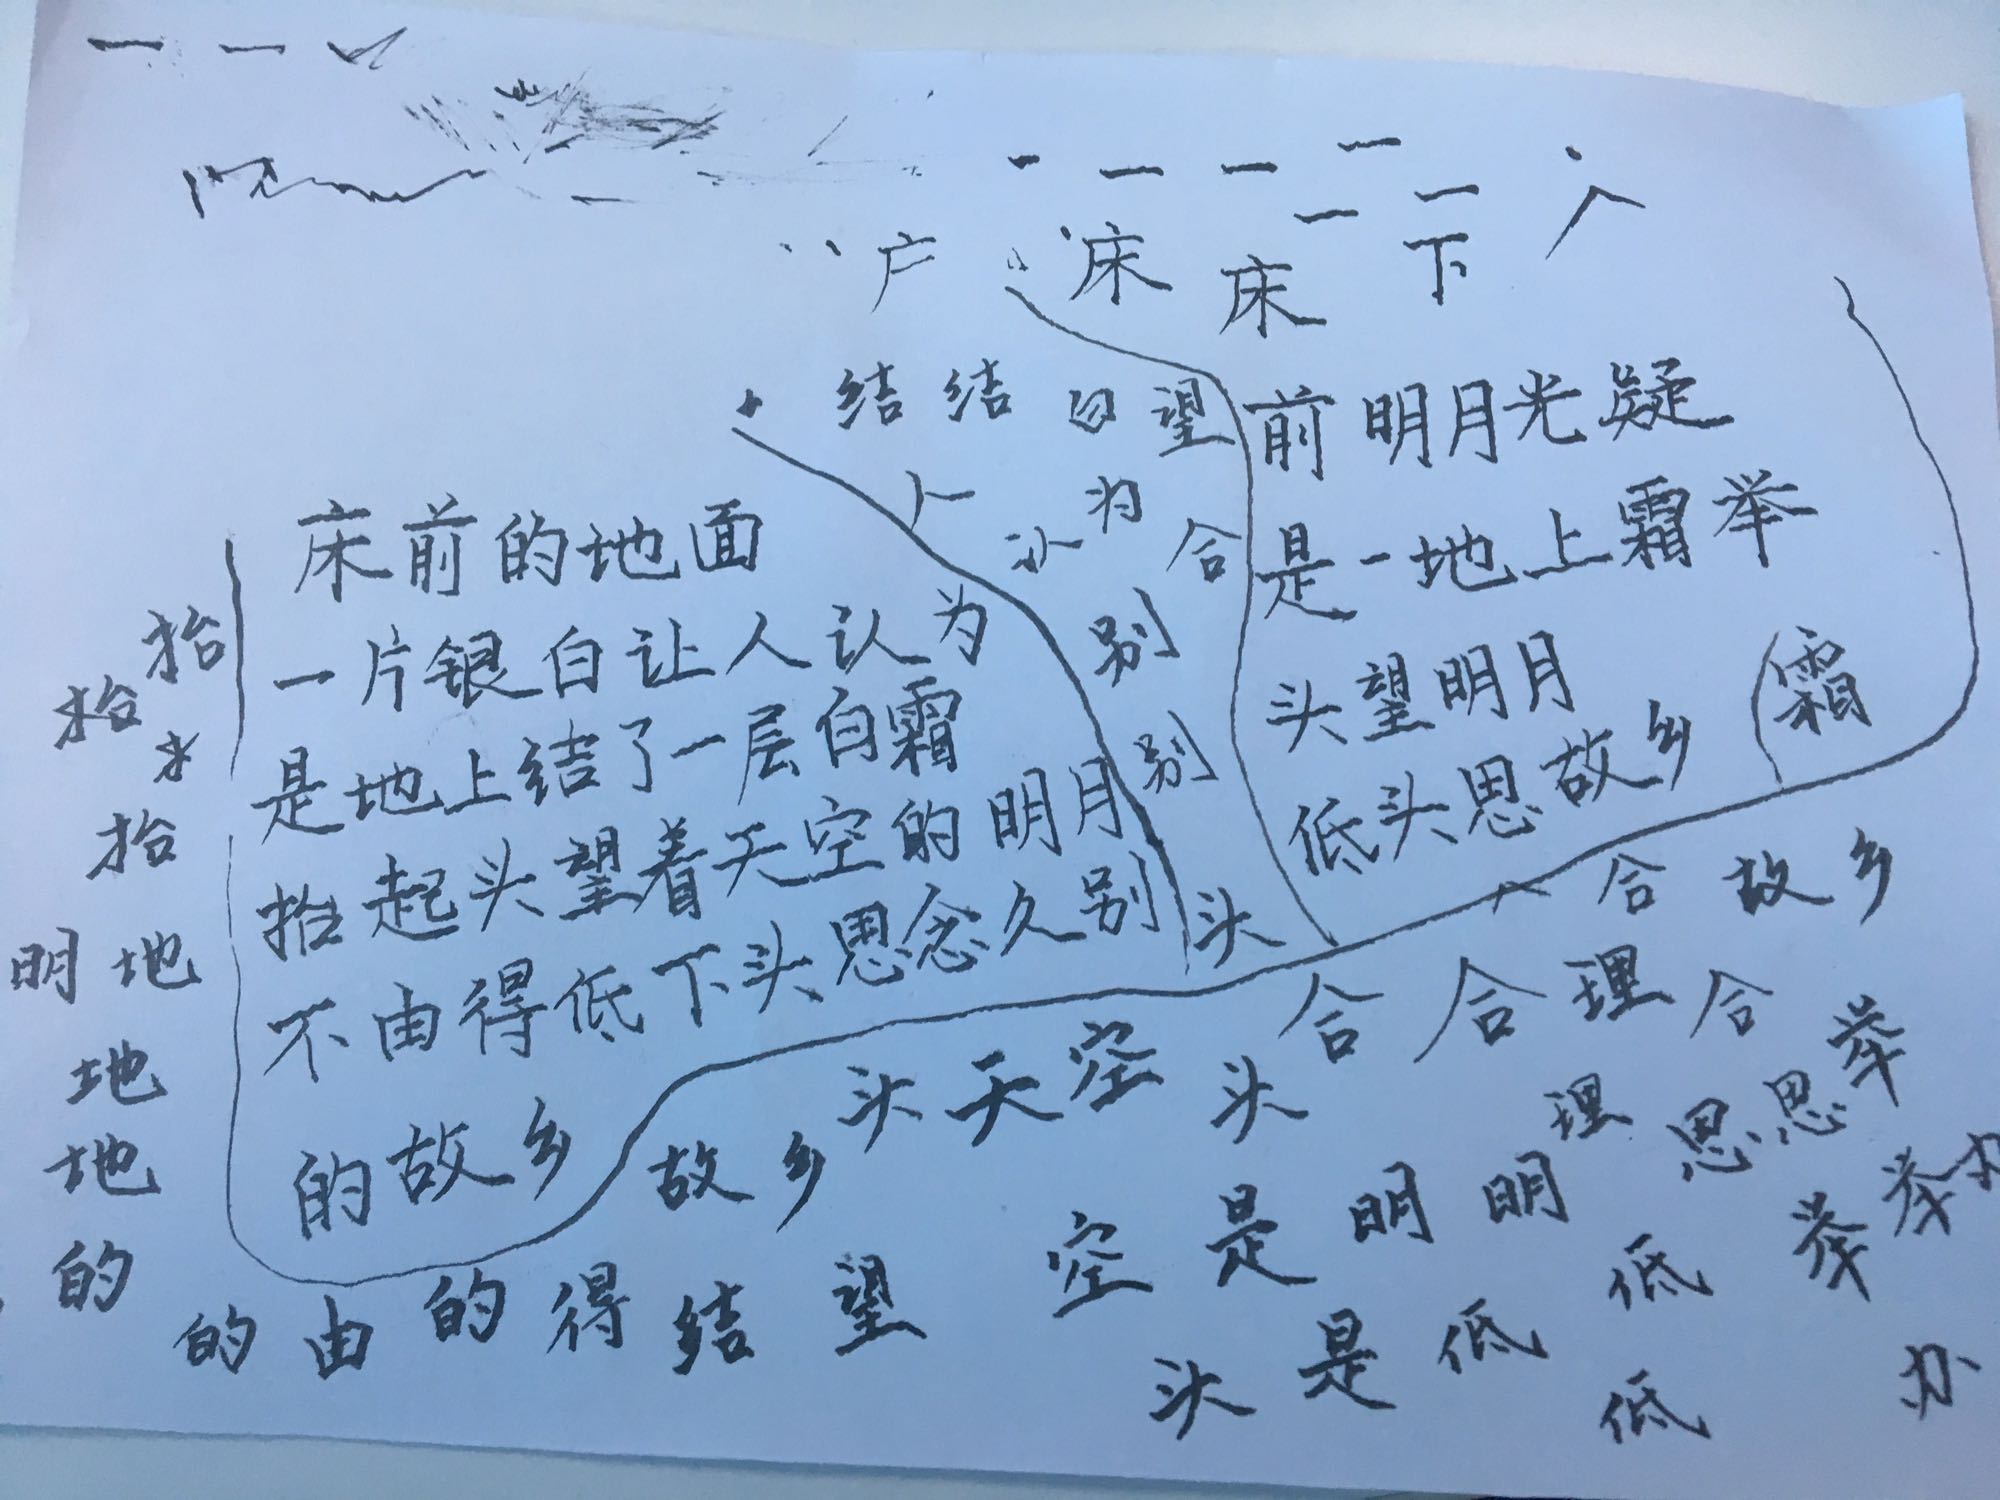 床 床 下
结 结 白 望
前明月光疑
是一地上霜举
头望明月
低头思故乡
霜
合
为
别
别
头
床前的地面
一片银白让人认为
是地上结了一层白霜
抬起头望着天空的明月
不由得低下头思念久别
的故乡
抬
抬
抬
明 地
地
地
的
合 故乡
合 合 理 合 举
故乡 头 天 空 头 理 思 思 举
空 是 明 明 低 举
的 由 的 得 结 望
头 是 低 低 办